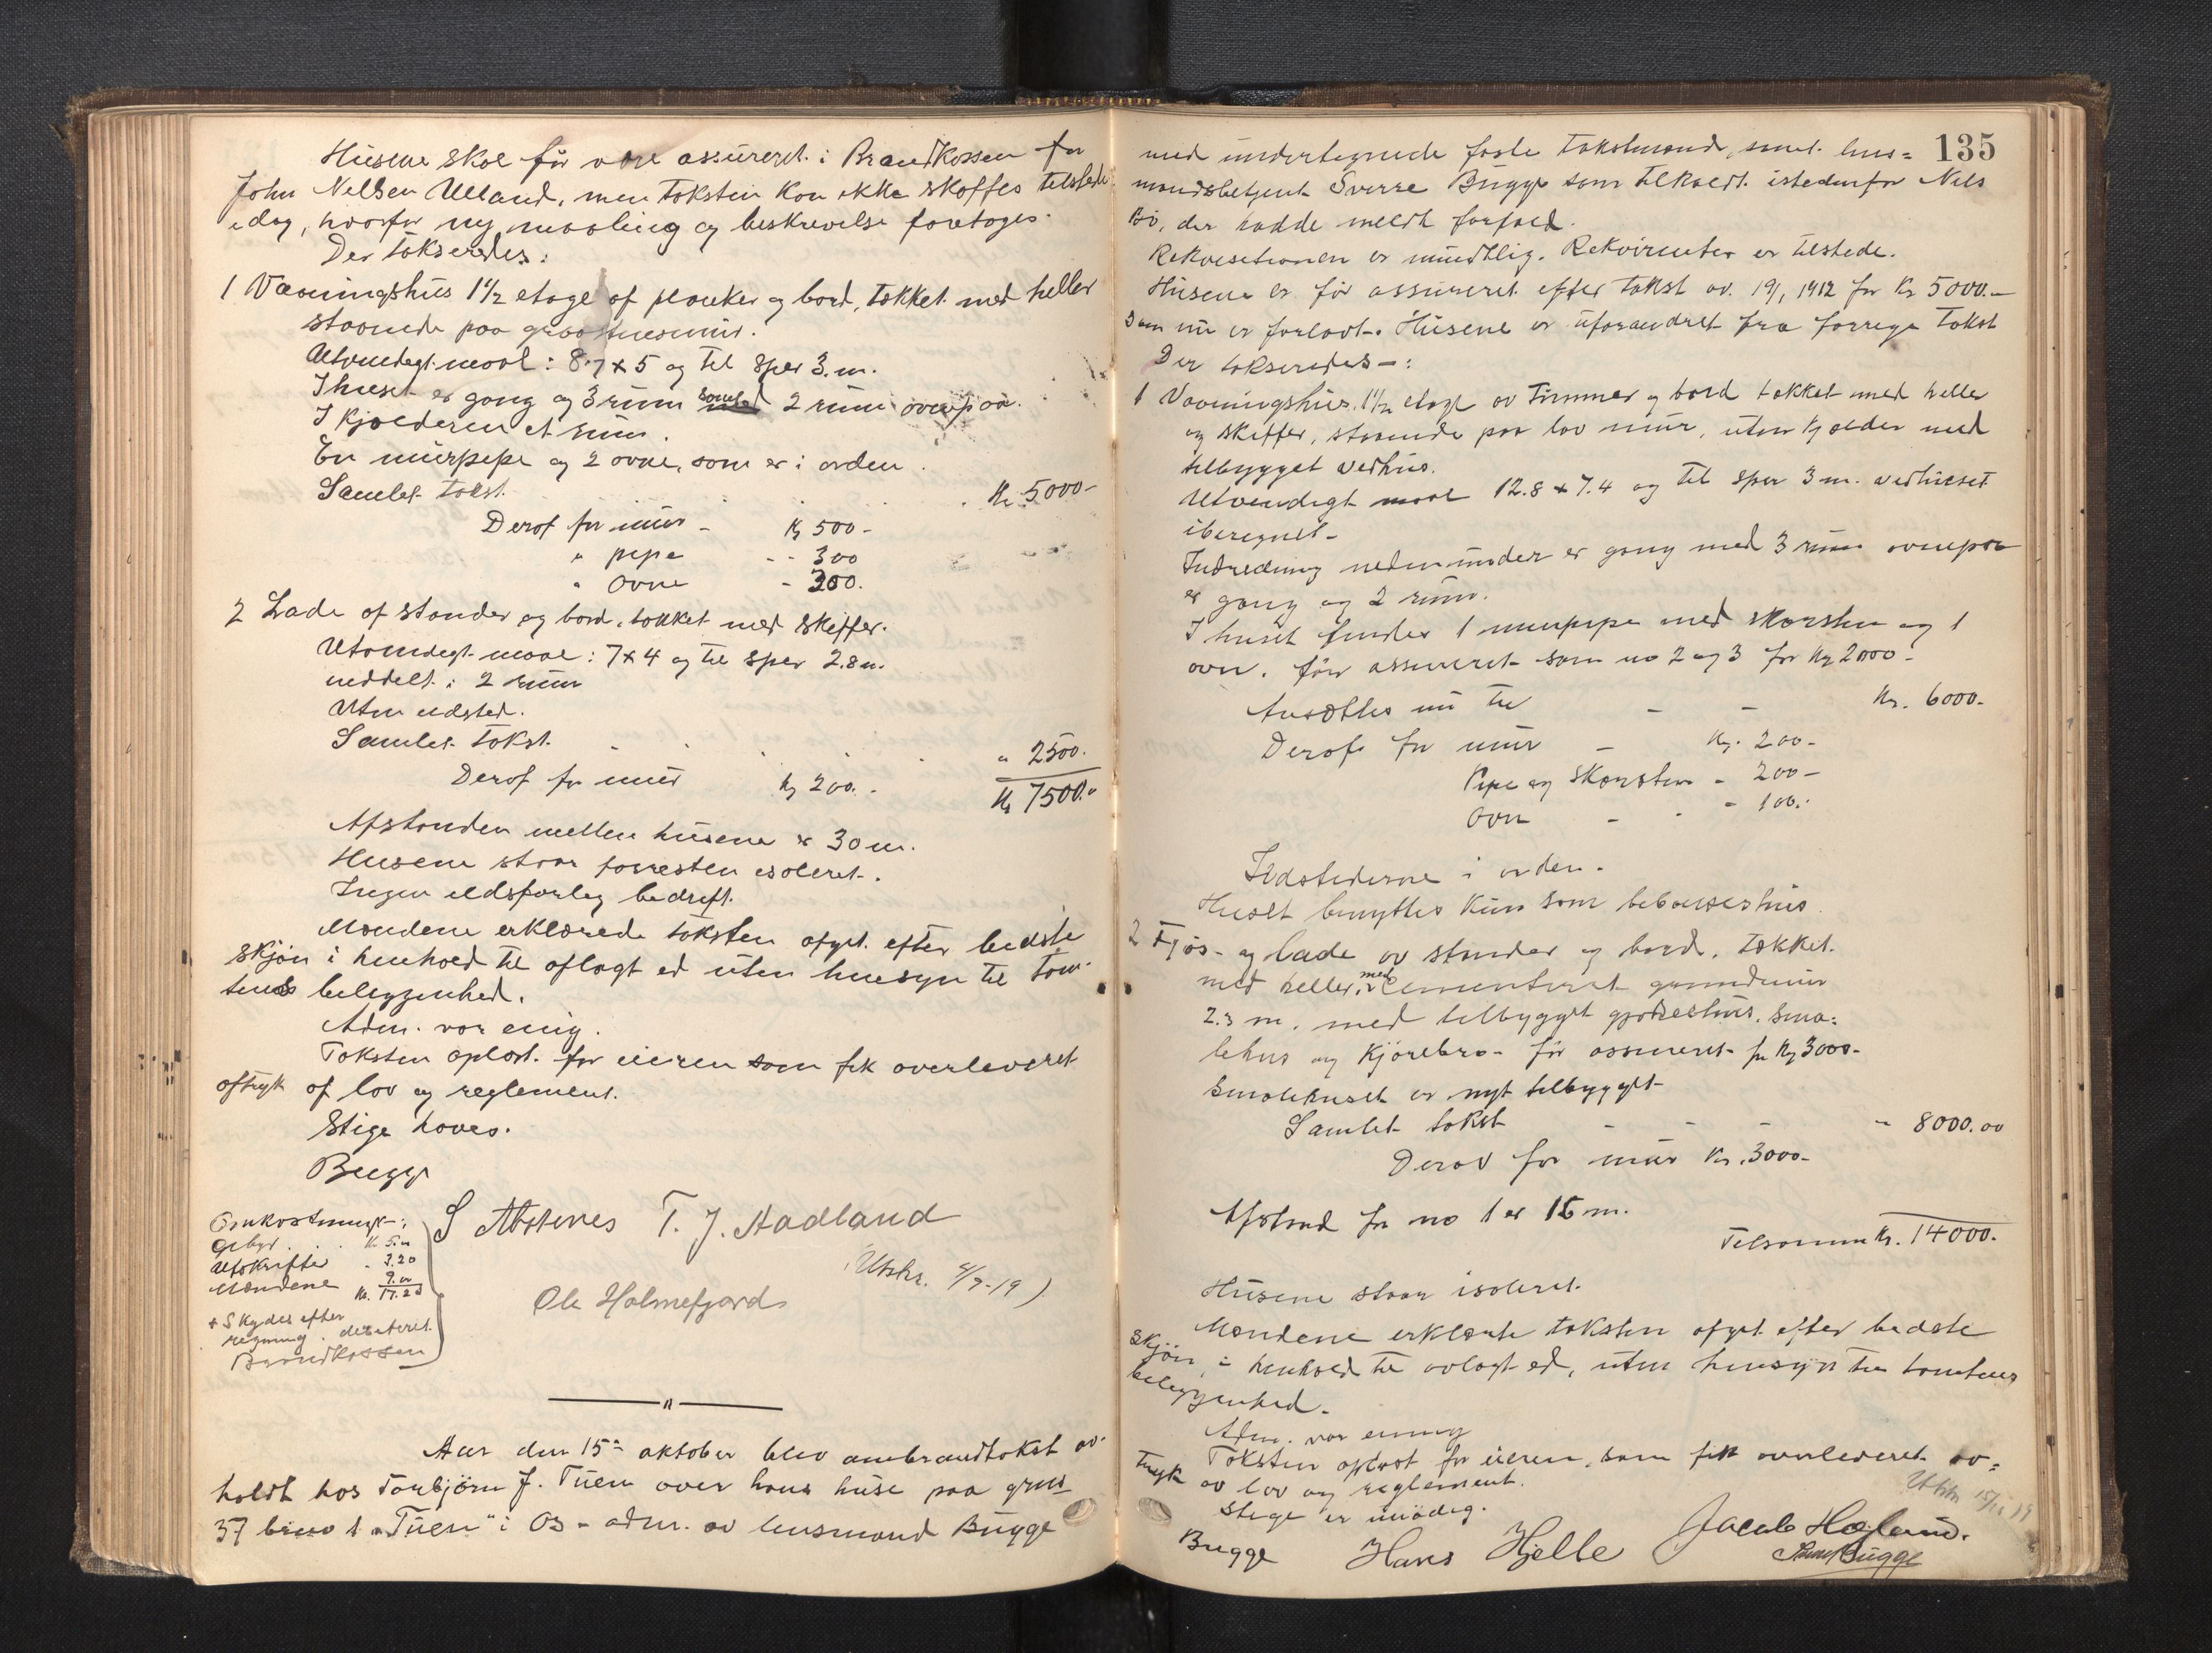 Husene skal før være assureret i Brandkassen for
John Nellsen Ulland, men taksten kan ikke skaffes tilstede
idag, hvorfor ny maaling og beskrivelse foretages.
Der takseredes:
1 Vaaningshus 1 1/2 etage af planker og bord, tækket med heller
staaende paa graastensmur.
Utvendigt maal: 8.7 x 5 og til sper 3. m.
I huset er gang og 3 rum samt 2 rum ovenpaa.
I kjælderen et rum.
En murpipe og 2 ovne, som er i orden.
Samlet takst. Kr 5000-
Deraf for mur - Kr 500-
" pipe - - 300
" Ovne - 200.
2 Lade af stander og bord, tækket med skiffer.
Utvendigt maal: 7 x 4 og til sper 2.8 m.
inddelt i 2 rum
Uten ildsted.
Samlet takst. " 2500.
Deraf for mur Kr 200.- Kr 7500.-
Afstanden mellem husene er 30 m.
Husene staar forresten isoleret.
Ingen ildsfarlig bedrift.
Mændene erklærede taksten afgit efter bedste
skjøn i henhold til aflagt ed uten hensyn til tom-
tens beliggenhed.
Adm. var enig.
Taksten oplæst for eieren som fik overleveret
aftryk af lov og reglement.
Stige haves.
Bugge
S T. J. Hadland
Ole Holmefjord
(Utskr. 4/9-19)
Omkostninger:
Gebyr . . Kr 5.00
Utskrifter - 3.20
Mændene 9.00
Kr. 17.20
+ Skyds efter
regning . debiteret
Brandkassen
Aar den 15de oktober blev ombrandtakst av-
holdt hos Torbjørn J. Tuen over hans huse paa grns
37 brno 1 "Tuen" i Os - adm. av lensmand Bugge
135
med undertegnede faste takstmænd, samt lens-
mandsbetjent Sverre Bugge som tilkaldt istedenfor Nils
Bø, der hadde meldt forfald.
Rekvisitionen er mundtlig. Rekvirenten er tilstede.
Husene er før assureret efter takst av 19/1 1912 for Kr 5000.-
som nu er forlavt. Husene er uforandret fra forrige takst
Der takseredes-:
1 Vaaningshus, 1 1/2 etage av tømmer og bord tækket med heller
og skiffer, staaende paa lav mur, uten kjælder med
tilbygget vedhus.
Utvendigt maal 12.8 x 7.4 og til sper 3 m. vedhuset
iberegnet-
Indredning nedenunder er gang med 3 rum ovenpaa
er gang og 2 rum.
I huset findes 1 murpipe med skorsten og 1
ovn. før assureret som no 2 og 3 for Kr 2000-
Ansættes nu til - - Kr. 6000.-
Deraf for mur - Kr. 200-
Pipe og skorsten - 200-
Ovn - - - 100.-
Ildstederne i orden.
Huset benyttes kun som beboelseshus
2 Fjøs- og lade av stander og bord, tækket
med heller, med cementeret grundmur
2.3 m. med tilbygget gjødselhus, sma-
lehus og kjørebro- før assureret for Kr 3000-
Smalehuset er nyt tilbygget-
Samlet takst - - - " 8000.00
Derav for mur Kr. 3000-
Afstand fra no 1 er 15 m.
Tilsammen Kr. 14000.-
Husene staar isoleret.
Mændene erklærte taksten afgit efter bedste
skjøn i henhold til avlagt ed, uten hensyn til tomtens
beliggenhed.
Adm. var enig
Taksten oplæst for eieren, som fik overleveret av-
tryk av lov og reglement.
Stige er unødig.
Utskr 15/11 19
Bugge Hans Hjelle Jacob Hegland.
Sverre Bugge